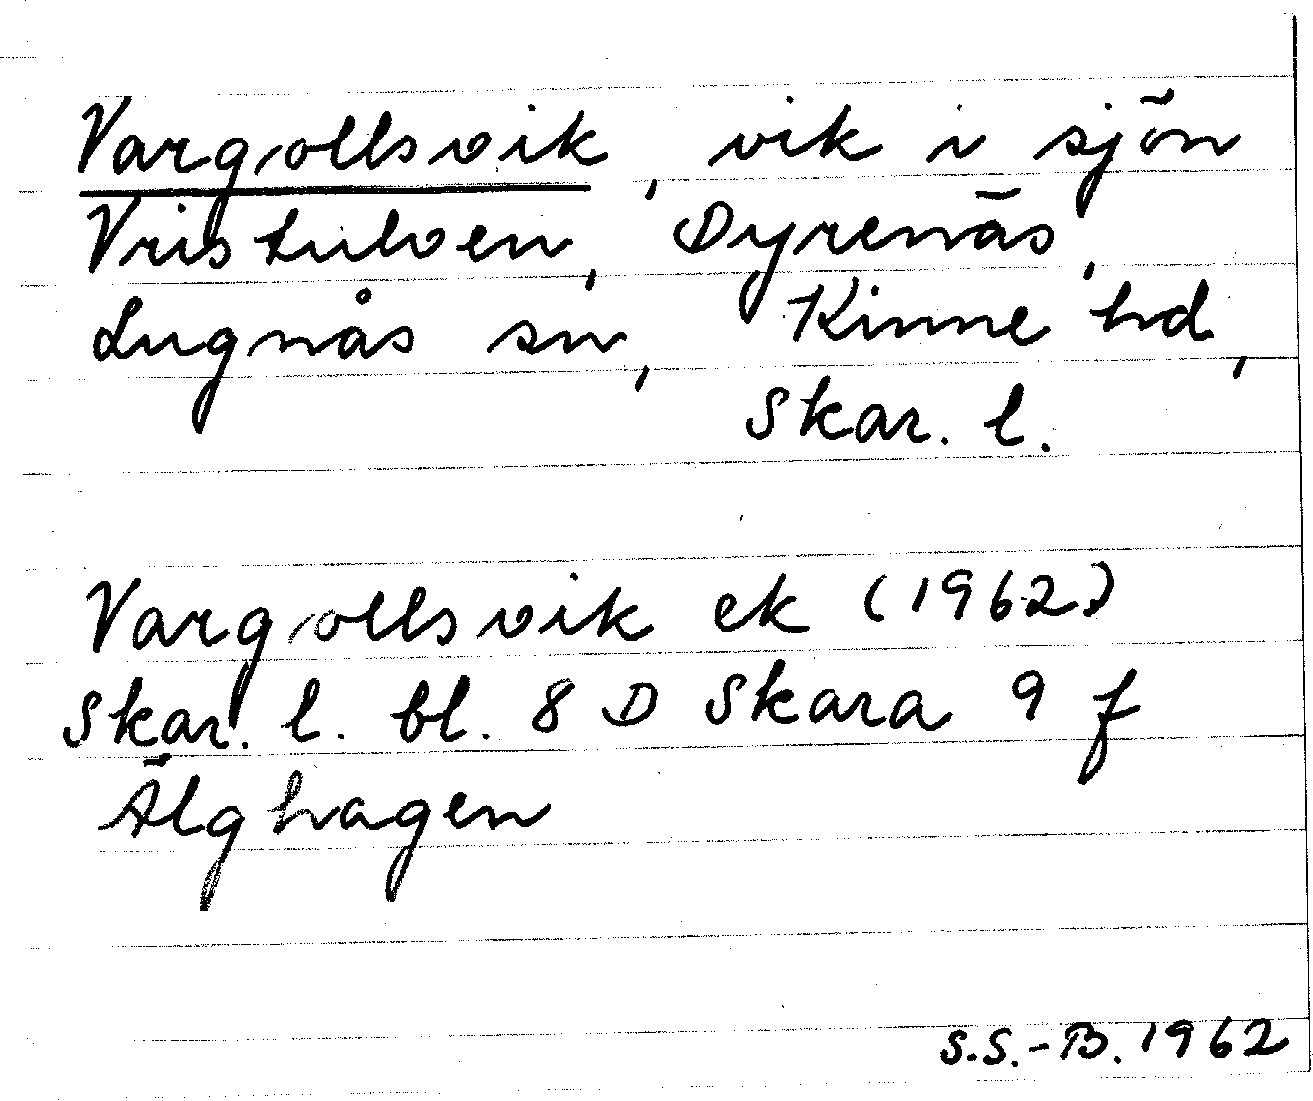 Vargollsvik, vik i sjön
Vristulven, Dyrenäs,
Lugnås sn, Kinne hd,
Skar. l.
Vargollsvik ek (1962)
Skar. l. bl. 8 D Skara 9 f
Älghagen
S.S.-B. 1962